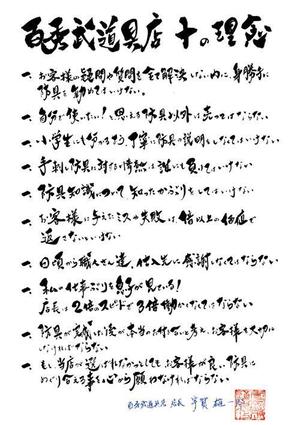 百秀武道具店 十の理念
一、お客様の疑問や質問を全て解決しない内に、身勝手に
防具を勧めてはいけない。
一、自分で使いたい!と思える防具以外は売ってはならない
一、小学生にも分かるよう、丁寧に防具の説明をしなくてはならない
一、手刺し防具に対する情熱は誰にも負けてはいけない
一、防具知識について、知ったかぶりをしてはいけない
一、お客様に与えたミスや失敗は、倍以上の価値で
返さないといけない
一、日頃から職人さん達、仕入先に感謝しなくてはならない
一、私の仕事ぶりを息子が見ている!
店長は2倍のスピードで3倍働かなくてはならない
一、防具が完成した後が本当のお付合いと考え、お客様を大切に
しなければならない
一、もし当店が選ばれなかったとしてもお客様が良い防具に
めぐり合える事を心から願わなければならない
百秀武道具店 店長